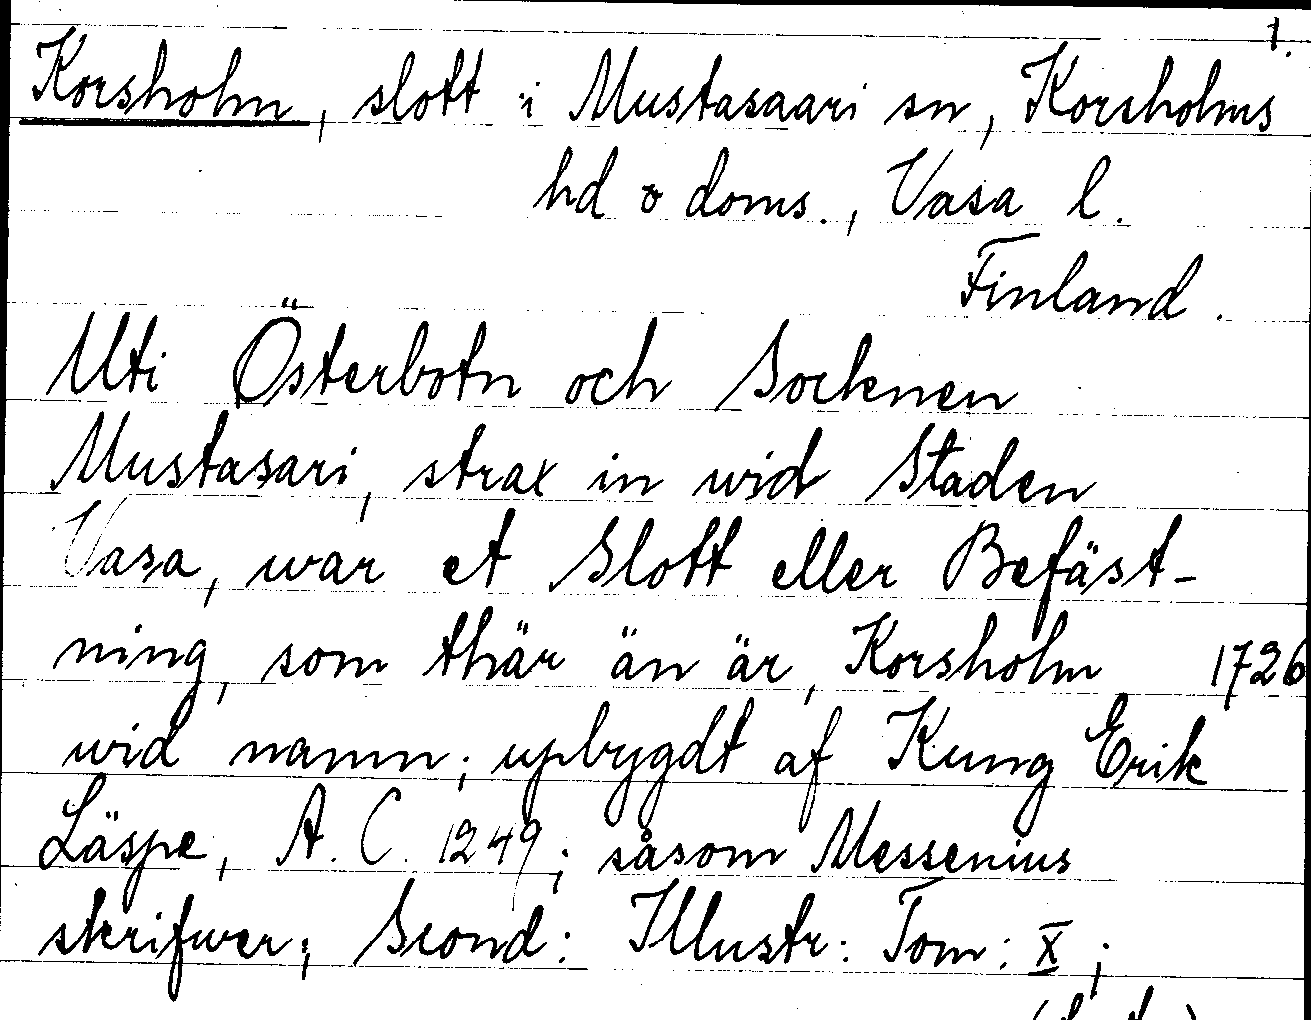 1.
Korsholm, slott i Mustasaari sn, Korsholms
hd o doms., Vasa l.
Finland.
Uti Österbotn och Socknen
Mustasari, strax in wid Staden
Vasa, war et Slott eller Befäst-
ning, som thär än är, Korsholm 1726
wid namn; upbygdt af Kung Erik
Läspe, A. C. 1249; såsom Messenius
skrifwer; Scond: Illustr: Tom: X;